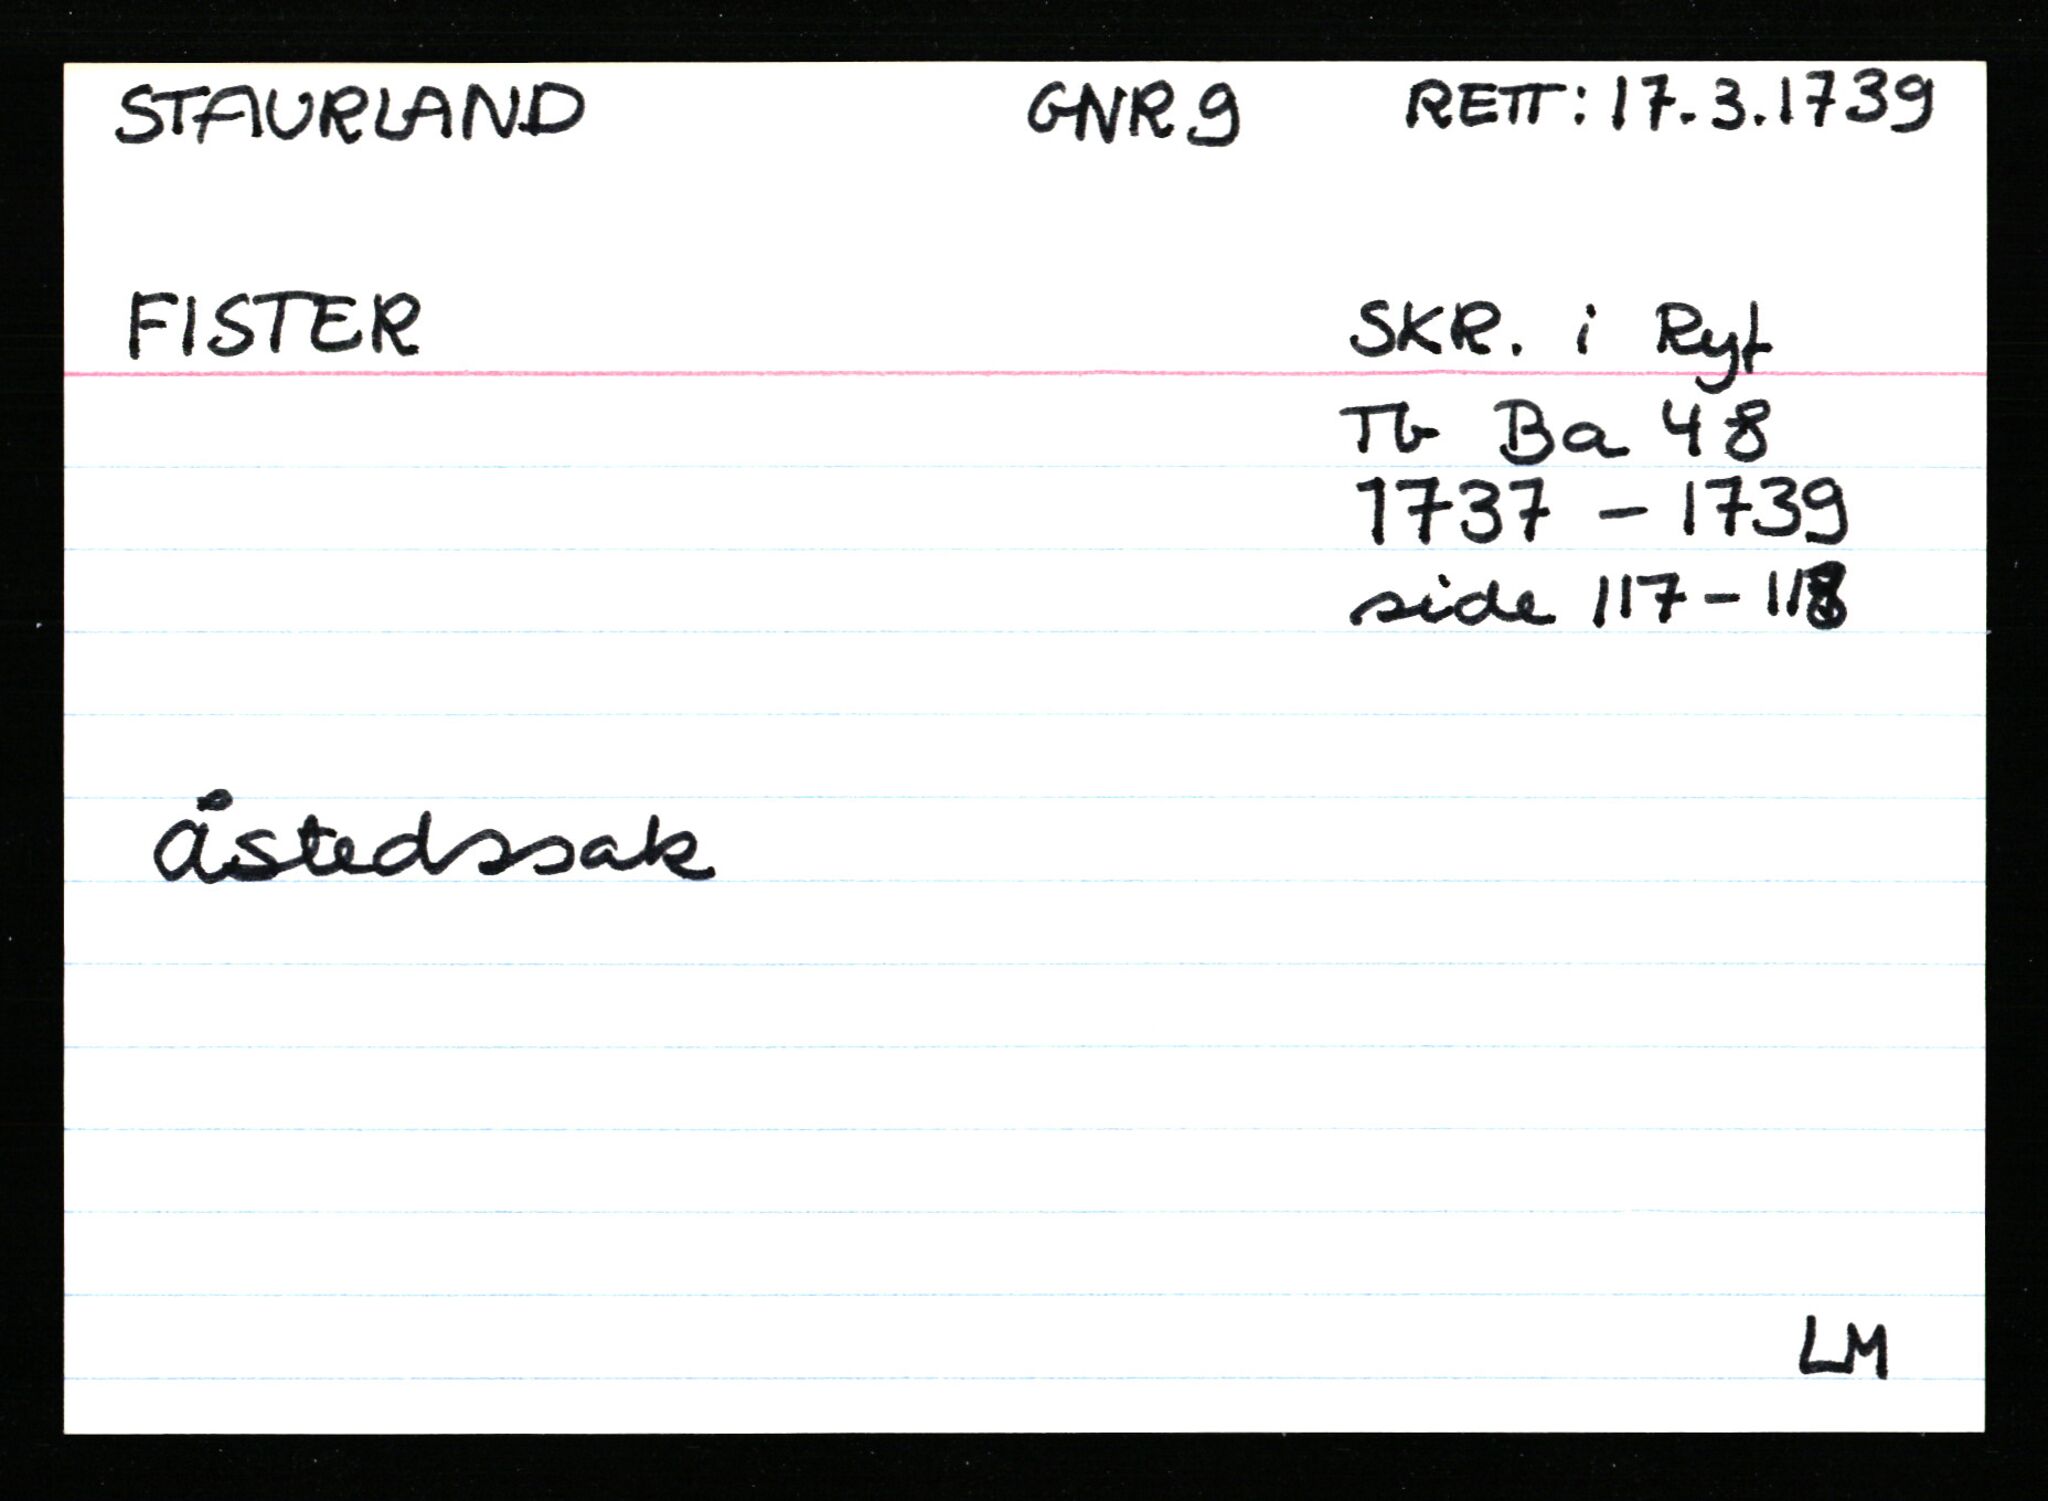 STAURLAND GNR 9 RETT: 17.3.1739
FISTER SKR. i Ryf
Tb Ba 48
1737 - 1739
side 117-118
åstedssak
LM